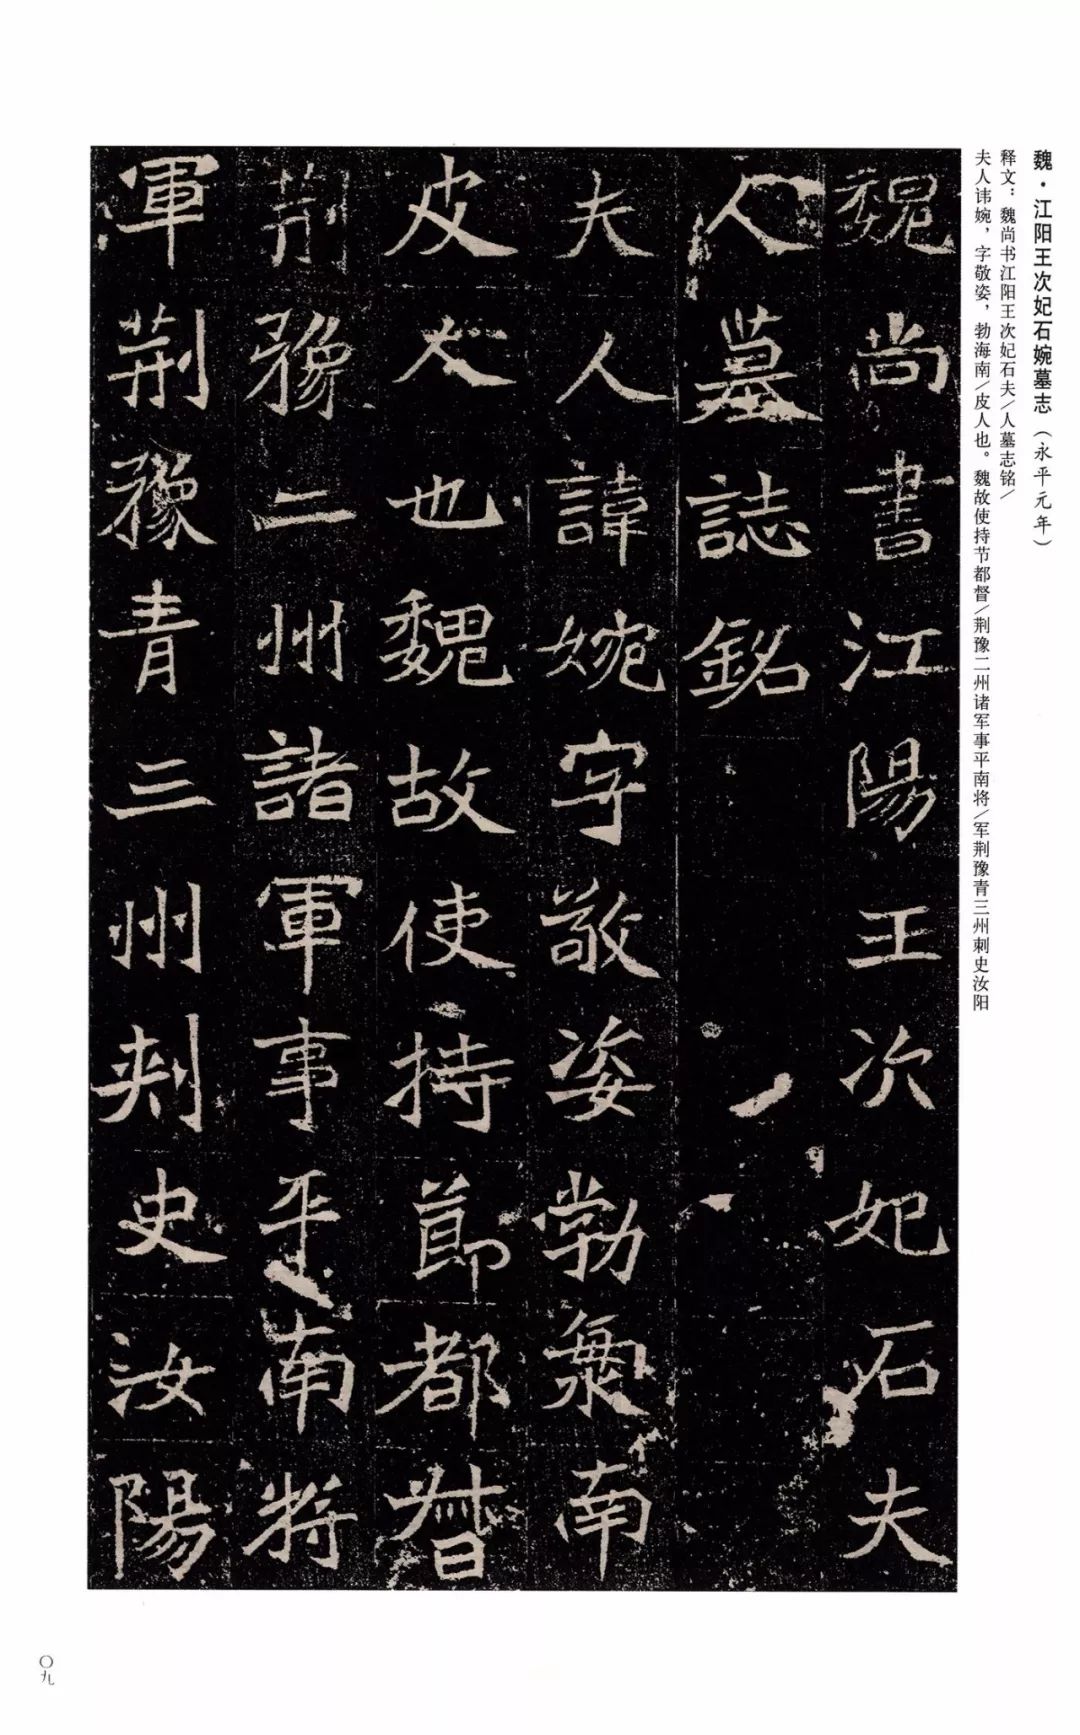 魏·江阳王次妃石婉墓志（永平元年）
释文：魏尚书江阳王次妃石夫/人墓志铭/
夫人讳婉，字敬姿，勃海南/皮人也。魏故使持节都督/荆豫二州诸军事平南将/军荆豫青三州刺史汝阳
魏尚書江陽王次妃石夫
人墓誌銘
夫人諱婉字敬姿勃海南
皮人也魏故使持節都督
荊豫二州諸軍事平南將
軍荊豫青三州刺史汝陽
〇九